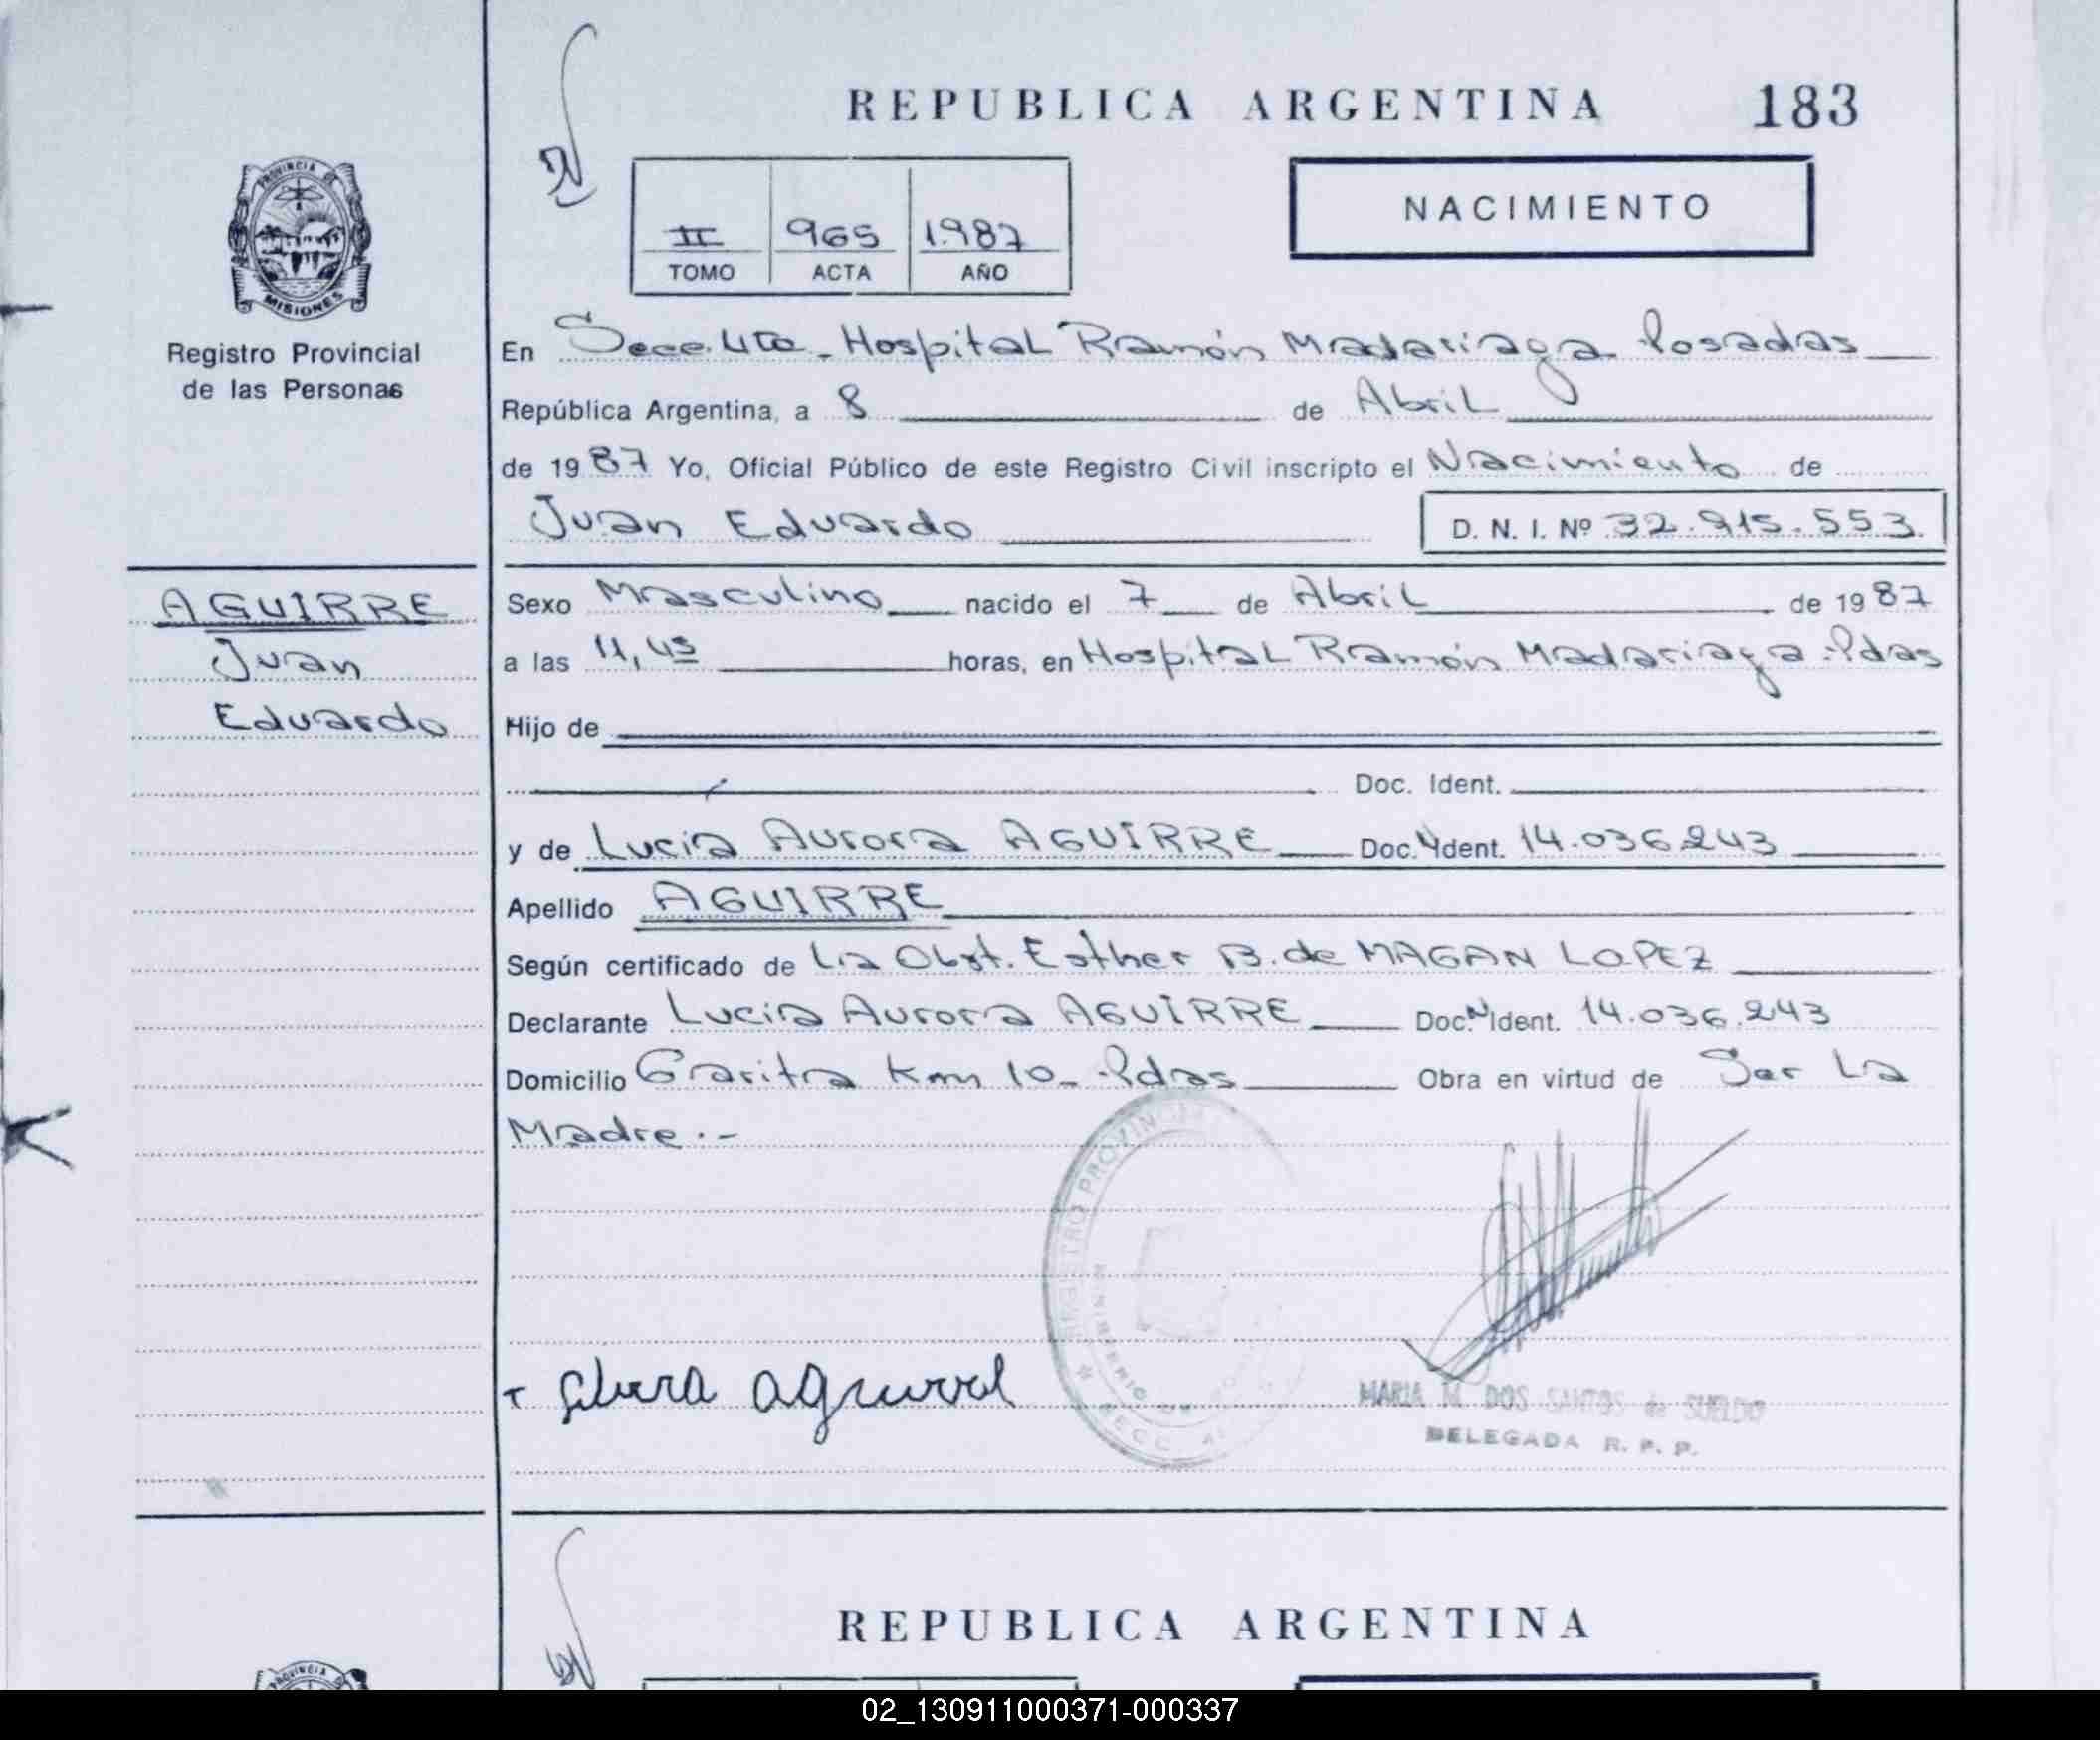 REPUBLICA ARGENTINA 183
PROVINCIA DE
MISIONES
Registro Provincial
de las Personas
II 965 1.987
TOMO ACTA AÑO
NACIMIENTO
En Secc. 4ta - Hospital Ramón Madariaga Posadas
República Argentina, a 8 de Abril
de 1987 Yo, Oficial Público de este Registro Civil inscripto el Nacimiento de
Juan Eduardo D. N. I. Nº 32.915.553.
AGUIRRE
Juan
Eduardo
Sexo Masculino nacido el 7 de Abril de 1987
a las 11,45 horas, en Hospital Ramón Madariaga - Pdas
Hijo de
Doc. Ident.
y de Lucia Aurora AGUIRRE Doc. Ident. 14.036.243
Apellido AGUIRRE
Según certificado de La Obst. Esther B. de MAGAN LOPEZ
Declarante Lucia Aurora AGUIRRE Doc. Ident. 14.036.243
Domicilio Garita Km 10 - Pdas Obra en virtud de Ser La
Madre.-
REGISTRO PROVINCIAL
MARIA M. DOS SANTOS de SUELDO
DELEGADA R. P. P.
REPUBLICA ARGENTINA
PROVINCIA DE
02_130911000371-000337